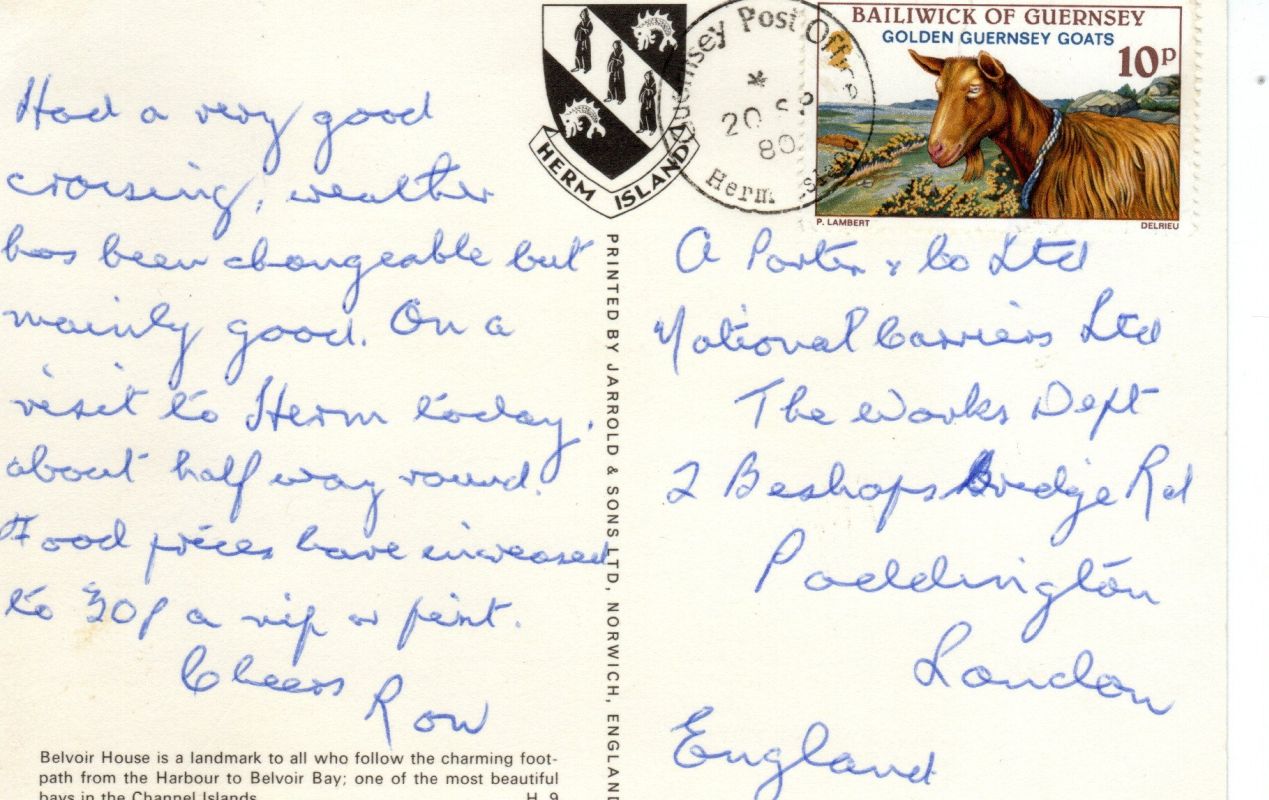 Had a very good
crossing, weather
has been changeable but
mainly good. On a
visit to Herm today,
about half way round.
Food prices have increased
to 30p a nip or pint.
Cheers
Row
Belvoir House is a landmark to all who follow the charming foot-
path from the Harbour to Belvoir Bay; one of the most beautiful
bays in the Channel Islands. H 9
HERM ISLAND
PRINTED BY JARROLD & SONS LTD, NORWICH, ENGLAND
Guernsey Post Office
20 SP
80
Herm
BAILIWICK OF GUERNSEY
GOLDEN GUERNSEY GOATS
10P
P. LAMBERT DELRIEU
A Porter & Co Ltd
National Carriers Ltd
The Works Dept
2 Beshops Bridge Rd
Paddington
London
England